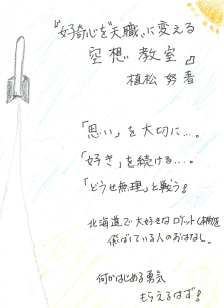 『"好奇心を"天職"に変える
空想教室』
植松 努
「思い」を大切に…。
「好き」を続ける…。
「どうせ無理」と戦う!
北海道で大好きなロケット
飛ばしている人のおはなし。
何かはじめる勇気
もらえるはず!